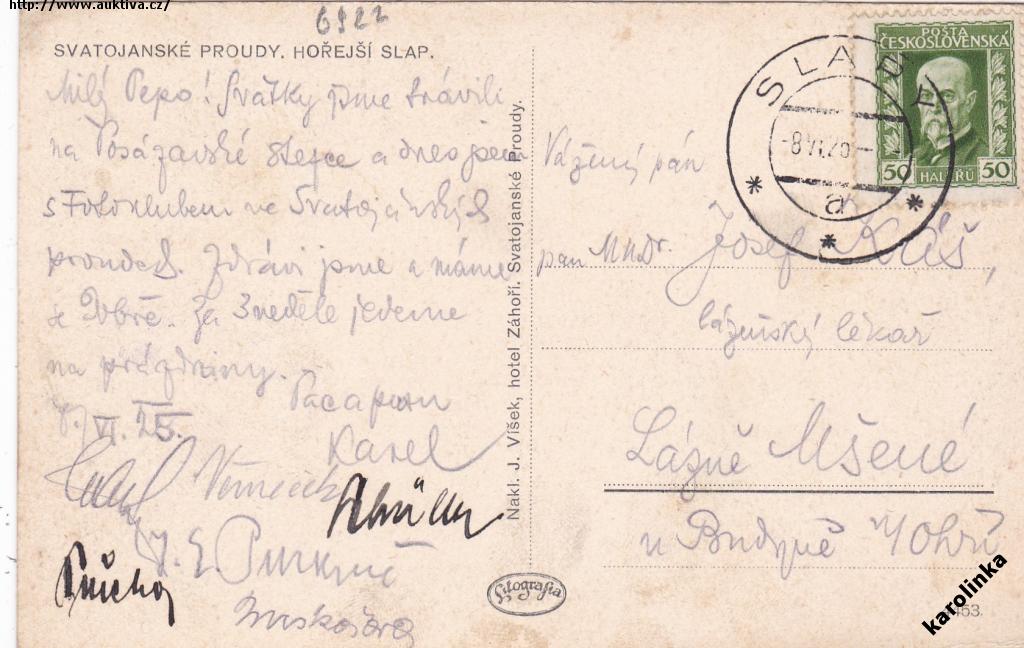 http://www.auktiva.cz/
6922
SVATOJANSKÉ PROUDY. HOŘEJŠÍ SLAP.
Milý Pepo! Svátky jsme trávili
na Posázavské stezce a dnes jsem
s Fotoklubem ve Svatojánských
proudech. Zdrávi jsme a máme
se dobře. Za 3 neděle jedeme
na prázdniny.
Karel
Němeček
J. E. Purkyně
Průcha
Nakl. J. Víšek, hotel Záhoří. Svatojanské Proudy.
POŠTA
ČESKOSLOVENSKÁ
50 HALÉŘŮ 50
SLAPY
-8.VI.26
a
Vážený pán
pan MUDr. Josef Káš,
lázeňský lékař
Lázně Mšené
u Budyně n/Ohří
Fotografia
453.
karolinka